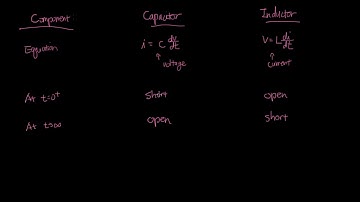 Component Capacitor Inductor
Equation i = C dv/dt V = L di/dt
↑ voltage ↑ current
At t=0⁺ short open
At t=∞ open short